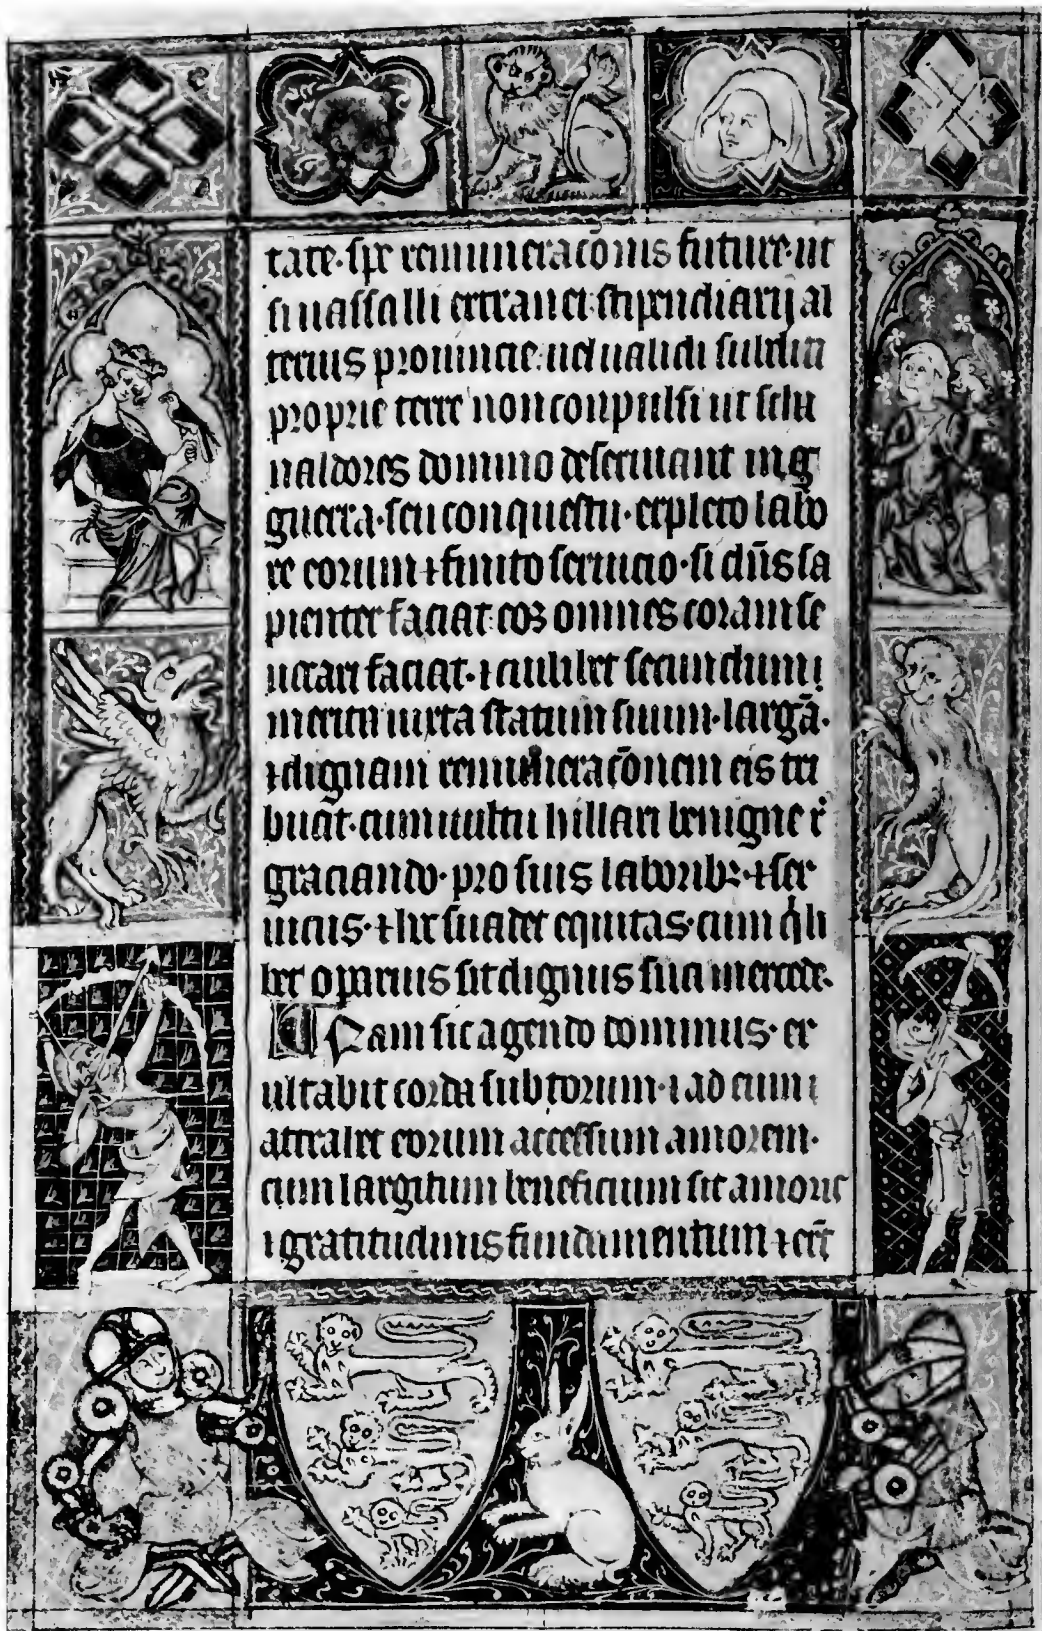 tate·spe remuneracōnis future·ut
si uassalli extranei·stipendiarij al
terius prouincie·uel ualidi subditi
proprie terre non conpulsi ut selu
naldores domino deseruiant in g
guerra·seu conquestu·expleto labo
re eorum ⁊ finito seruicio·si dn̄s sa
pienter faciat eoꝝ omnes coram se
uocari faciat·⁊ cuilibet secundum
merita iuxta statum suum·largā·
⁊ dignam remuneracōnem eis tri
buat·cum uultu hillari benigne r̄
graciando·pro suis laboribꝫ·⁊ ser
uiciis·⁊ hec suadet equitas·cum q̇li
bet operarius sit dignus sua mercede·
Nam sic agendo dominus·ex
ultabit corda subiectorum·⁊ ad eum
attrahet eorum accessum amorem·
cum largitiuum beneficium sit amoris
⁊ gratitudinis fundamentum ⁊ cer̄